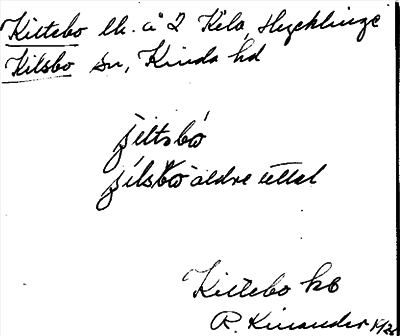 Kittebo lh. å 2 Kila, Hycklinge
Kilsbo sn, Kinda hd
jiltsbo
jilsbo äldre uttal
Kittebo kb
R. Kinander